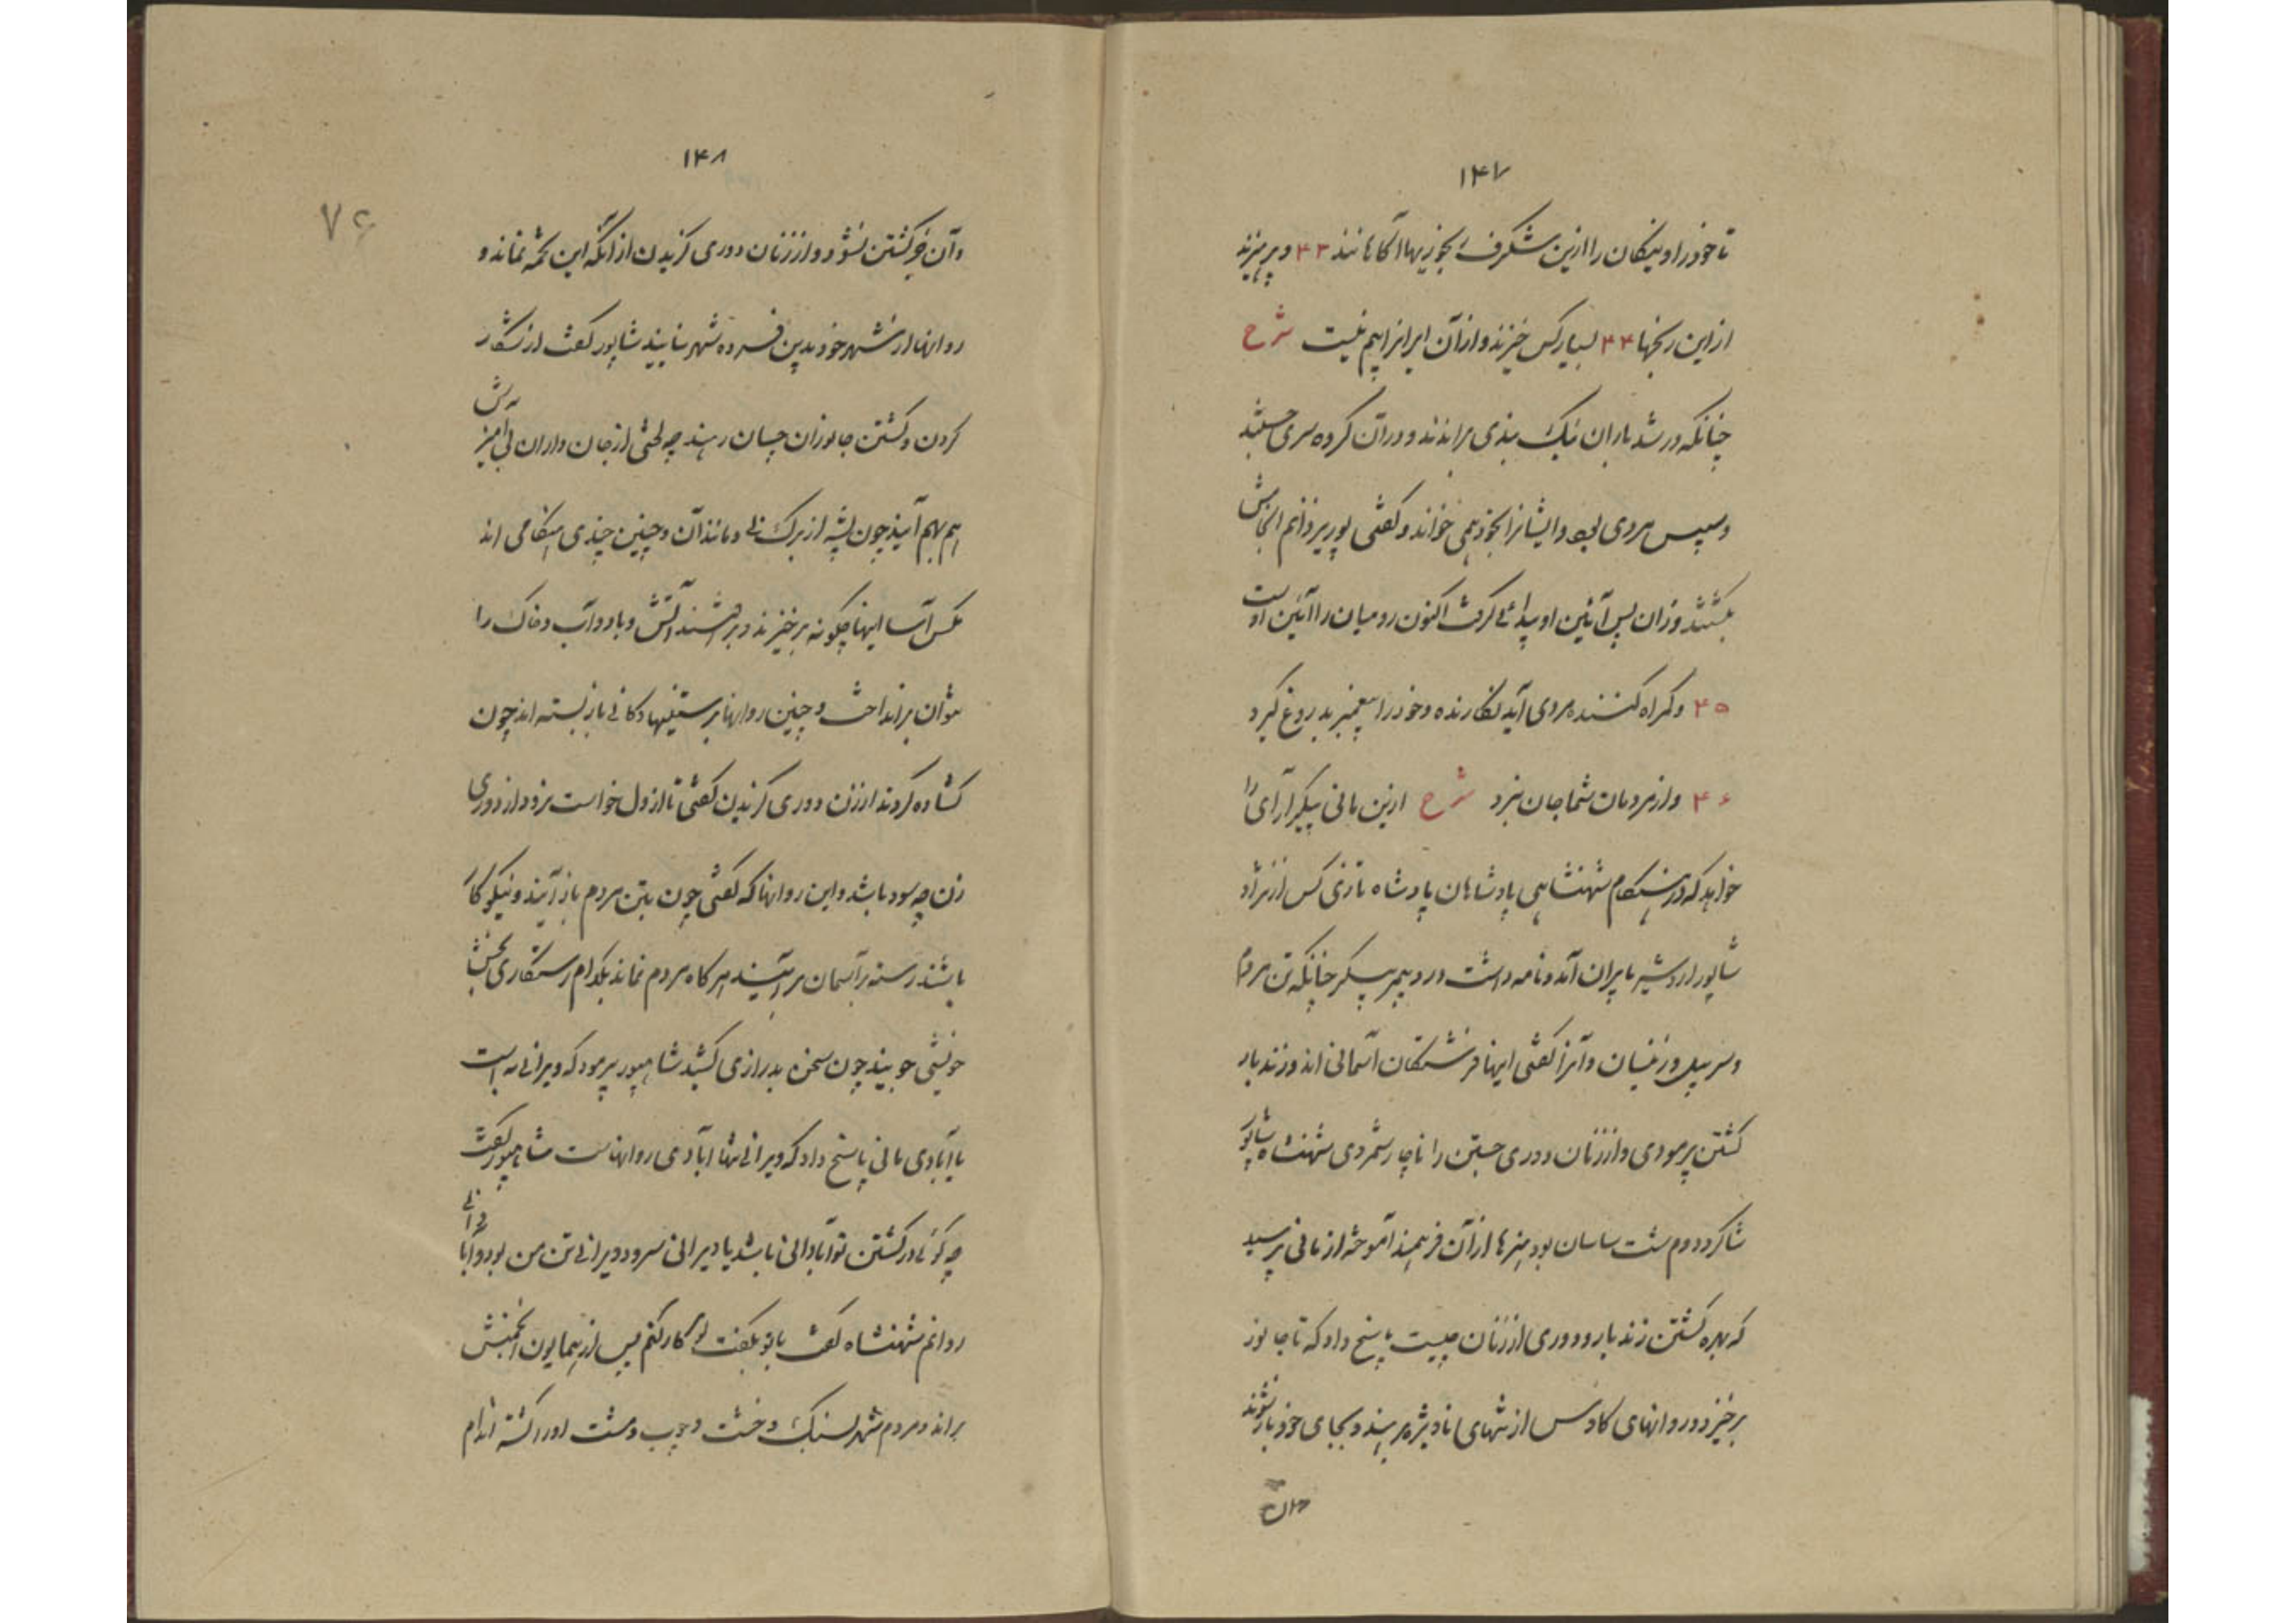 ۱۴۷
تا خود را و نیکان را ازین شگرف بخوزیها آگاهانند ۴۳ و پرهیزند
از این رنجها ۴۴ بسیار کس خیزند و از آن ایرانرا بیم نیست شرح
چنانکه در شدیاران نیک بندی براندند و در آن کروه سری جستند
و سپس مردی بود و ایشانرا بخود همی خواند و گفتی پور یزدانم انجامش
بکشتند و زان پس آئین او پیدائی گرفت اکنون رومیان را آئین اوست
۴۵ و گمراه کننده مردی آید نگارنده و خود را پیغمبر بدروغ گیرد
۴۶ و از مردمان شما جان نبرد شرح ازین مانی پیکرآرای را
خواهد که در هنگام شهنشاهی پادشاهان پادشاه تازنی کس از نژاد
شاپور اردشیر بایران آمد و نامه داشت در و پیمبر پیکر چنانکه تن مردم
و سر پیل و زینسان و آنرا گفتی اینها فرشتگان آسمانی اند و زندبار
کشتن پرمودی و از زنان دوری جستن را ناچار شمردی شهنشاه شاپور
شاگرد دوم ست ساسان بود هنرها از آن فرهمند آموخته از مانی پرسید
که بهره کشتن زندبار و دوری از زنان چیست پاسخ داد که تا جانور
برخیزد و روانهای کاوس از تنهای ناویژه رهیند و بجای خود باز شوند
و آن
۱۴۸
۷۶
و آن جز کشتن نشود و از زنان دوری گزیدن از آنکه این تخمه نماند و
روانها از شهر خود بدین فسرده شهر نیایند شاپور گفت از شکار
کردن و کشتن جانوران چسان رهند چه لختی از جان داران بی آمیزش
هم بهم آیند چون پشه از برگ نی و مانند آن و چنین چندی هنگامی اند
مگس آسا اینها چگونه برخیزند و برافتند آتش و باد و آب و خاک را
توان برانداخت و چنین روانها برستنیها و کانی باز بسته اند چون
گشاده گردند از زن دوری گزیدن گفتی تا از دل خواست نرود از دوری
زن چه سود باشد و این روانها که گفتی چون بتن مردم باز آیند و نیکوکار
باشند رسته بر آسمان برآیند هر گاه مردم نماند بکدام رستگاری بخش
خویشی جویند چون سخن بدرازی کشید شاهپور پرمود که ویرانی به است
یا آبادی مانی پاسخ داد که ویرانی تنها آبادی روانهاست شاهپور گفت
چه گوئی در کشتن تو آبادانی باشد یا ویرانی سرود ویرانی تن من بود و آبادانی
روانم شهنشاه گفت با تو بگفت تو کار کنم پس از همایون انجمنش
براند و مردم شهر بسنگ و خشت و چوب و مشت او را کشته اندام